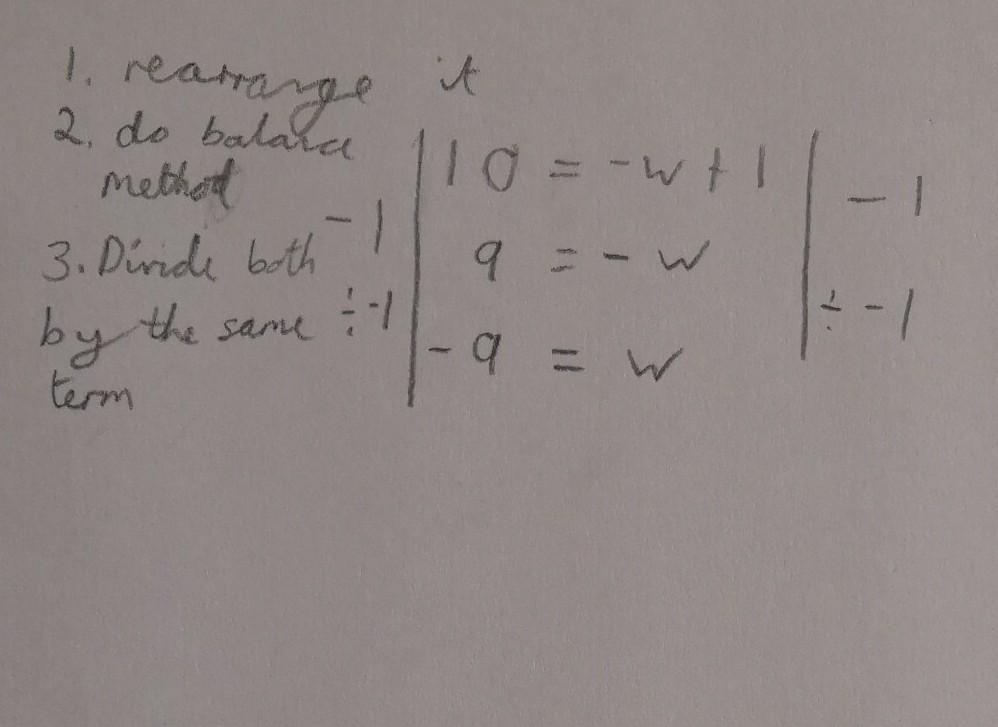 1. rearrange it
2. do balance
method
3. Divide both
by the same
term
10 = -w + 1
-1 | | -1
9 = - w
÷-1 | | ÷ -1
-9 = w